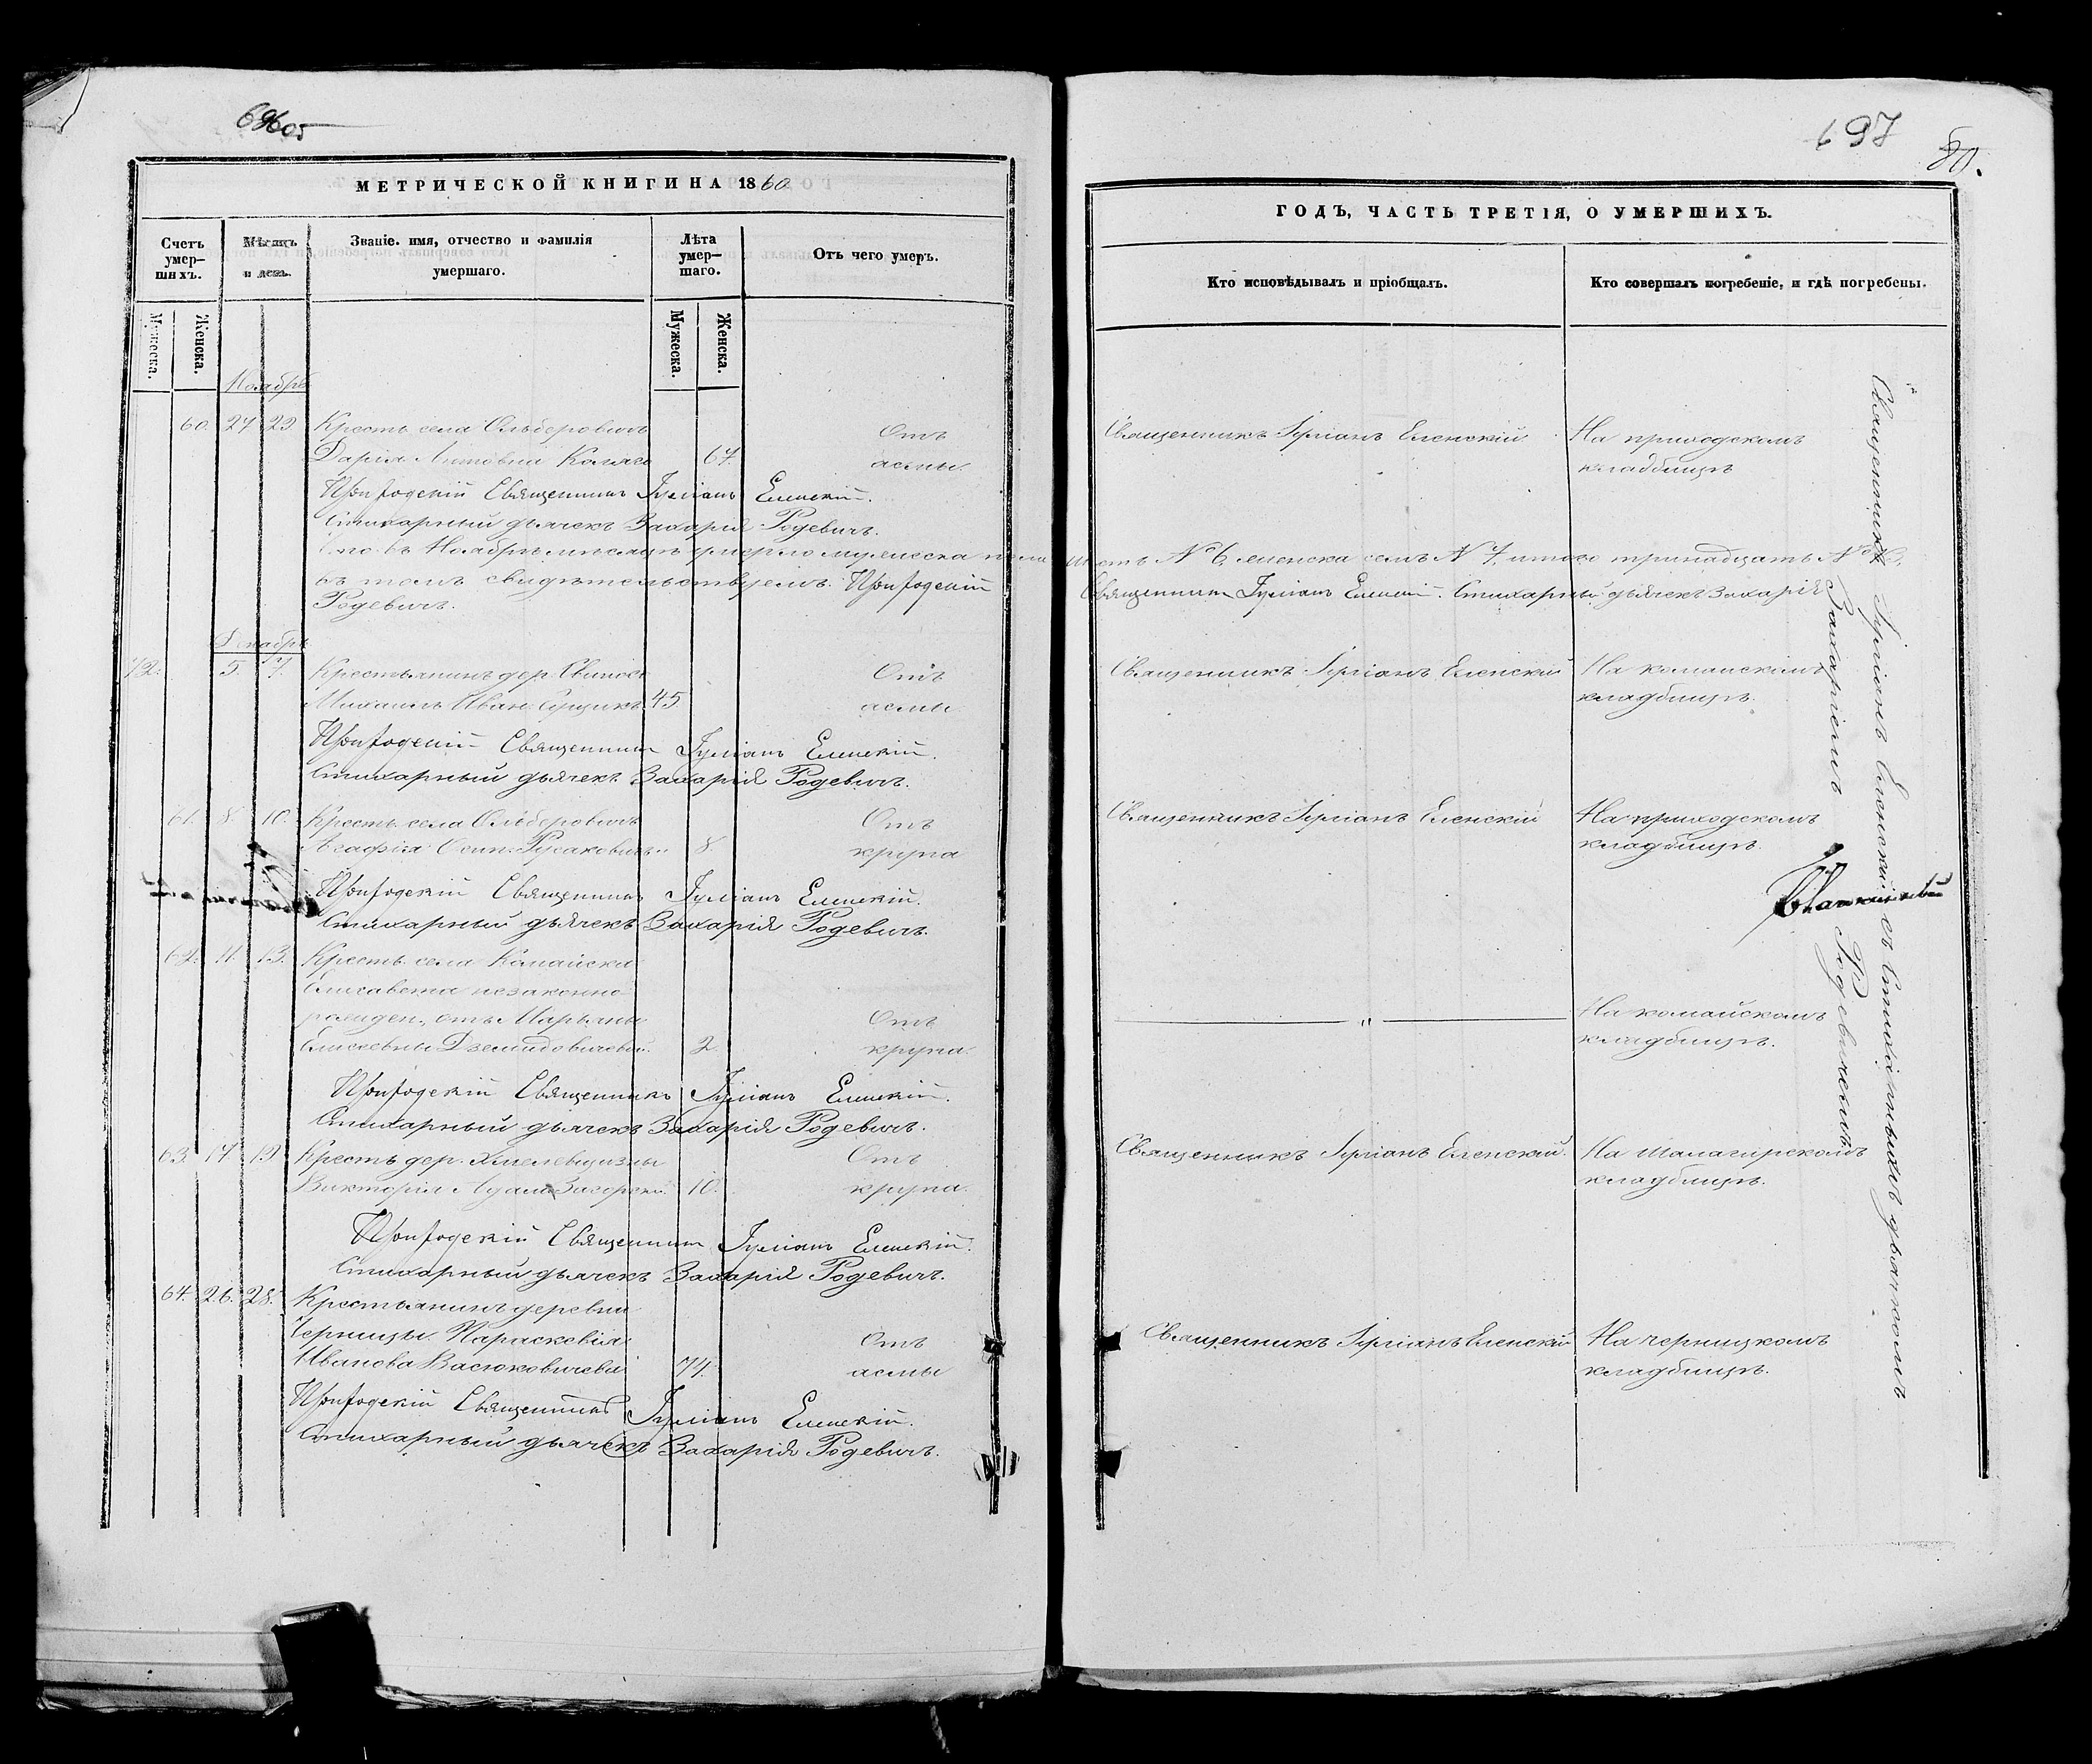 696об
МЕТРИЧЕСКОЙ КНИГИ НА 1860
Счетъ умер-шихъ.
Мѣсяцъ и день.
Званіе. имя, отчество и фамилія умершаго.
Лѣта умер-шаго.
Отъ чего умеръ.
Мужеска.
Женска.
Мужеска.
Женска.
Ноябрь
60. 27 29 Крест. села Ольберовичъ Отъ
Дарія 67. асмы.
Приходскій Священникъ Іуліанъ Еленскій.
Стихарный дьячекъ Захарія Родевичъ.
Что въ Ноябрѣ мѣсяцѣ умерло мужеска пола
въ томъ свидѣтельствуемъ: Приходскій
Родевичъ.
Декабрь
12. 5. 7. Крестьянинъ дер. Свинокъ Отъ
Михаилъ Иван. 45 асмы
Приходскій Священникъ Іуліанъ Еленскій.
Стихарный дьячекъ Захарія Родевичъ.
61. 8. 10. Крест. села Ольберовичъ Отъ
Агафія Осип. Русаковичъ 8. крупа
Приходскій Священникъ Іуліанъ Еленскій.
Стихарный дьячекъ Захарія Родевичъ.
62. 11. 13. Крест. села Комайска
Елисавета незаконно
рожден., отъ Марьяны Отъ
Елисеевны Дземидовичевой. 2. крупа.
Приходскій Священникъ Іуліанъ Еленскій.
Стихарный дьячекъ Захарія Родевичъ.
63. 17 19 Крест. дер. Хмелевщизны Отъ
Викторія Адам. Загорска. 10. крупа.
Приходскій Священникъ Іуліанъ Еленскій.
Стихарный дьячекъ Захарія Родевичъ.
64. 26. 28. Крестьянинъ деревни
Черницы Парасковія Отъ
Иванова Васюковичева 74. асмы
Приходскій Священникъ Іуліанъ Еленскій.
Стихарный дьячекъ Захарія Родевичъ.
697
80.
ГОДЪ, ЧАСТЬ ТРЕТІЯ, О УМЕРШИХЪ.
Кто исповѣдывалъ и пріобщалъ.
Кто совершалъ погребеніе, и гдѣ погребены.
Священникъ Іуліанъ Еленскій. На приходскомъ
кладбищѣ
шесть № 6, женска семь № 7, итого тринадцать №
Священникъ Іуліанъ Еленскій. Стихарный дьячекъ Захарія
Священникъ Іуліанъ Еленскій На комайскомъ
кладбищѣ.
Священникъ Іуліанъ Еленскій На приходскомъ
кладбищѣ.
На комайскомъ
кладбищѣ.
Священникъ Іуліанъ Еленскій. На
кладбищѣ.
Священникъ Іуліанъ Еленскій На черницкомъ
кладбищѣ.
Священникъ Іуліанъ Еленскій съ Стихарнымъ дьячкомъ
Захаріемъ Родевичемъ.